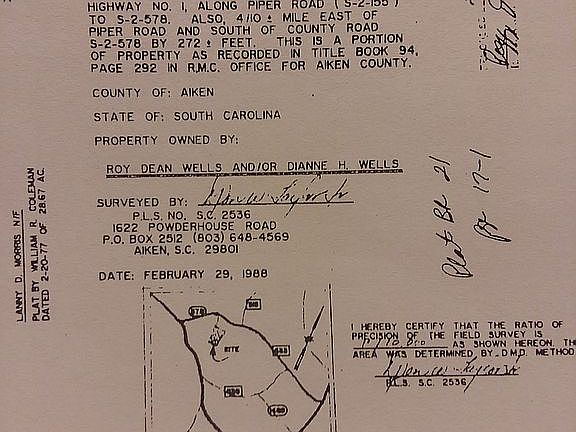 HIGHWAY NO. 1, ALONG PIPER ROAD (S-2-155)
TO S-2-578. ALSO, 4/10 ± MILE EAST OF
PIPER ROAD AND SOUTH OF COUNTY ROAD
S-2-578 BY 272 ± FEET. THIS IS A PORTION
OF PROPERTY AS RECORDED IN TITLE BOOK 94,
PAGE 292 IN R.M.C. OFFICE FOR AIKEN COUNTY.
COUNTY OF: AIKEN
STATE OF: SOUTH CAROLINA
PROPERTY OWNED BY:
ROY DEAN WELLS AND/OR DIANNE H. WELLS
SURVEYED BY:
P.L.S. NO. S.C. 2536
1622 POWDERHOUSE ROAD
P.O. BOX 2512 (803) 648-4569
AIKEN, S.C. 29801
DATE: FEBRUARY 29, 1988
LANNY D. MORRIS N/F
PLAT BY WILLIAM R. COLEMAN
DATED 2-20-77 OF 28.67 AC.
Plat Bk 21
Pg 17-1
578
SITE
I HEREBY CERTIFY THAT THE RATIO OF
PRECISION OF THE FIELD SURVEY IS
AS SHOWN HEREON. THE
AREA WAS DETERMINED BY D.M.D. METHOD
P.L.S. S.C. 2536